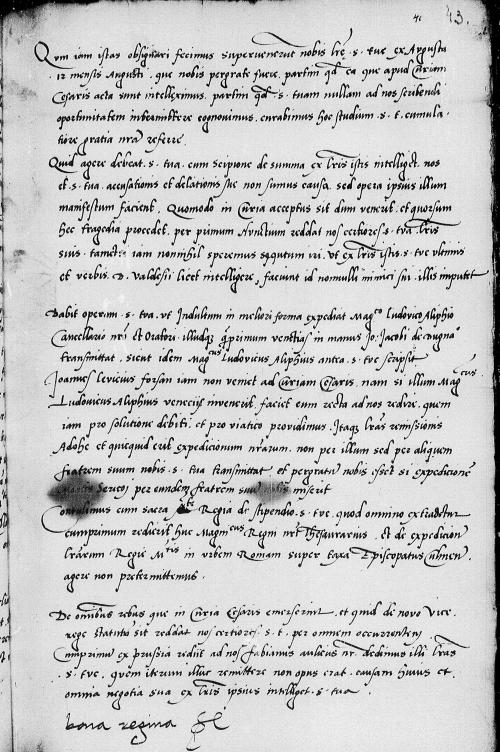 41 43.
Qum iam istas obsignari fecimus supervenerut nobis lre .s. tue ex Augusta
.12 mensis Augusti. que nobis pergrate fuere, partim qd ea que apud Curiam
Cesaris acta sunt intelleximus, partim qd .s. tuam nullam ad nos scribendi
oportunitatem intermittere cognovimus. curabimus hoc studium .s. t. cumula-
tiore gratia nra referre.
Quid agere debeat .s. tua. cum Scipione de summa ex lris istis intelliget. nos
et .s. tua. accusationis et delationis sue non sumus causa, sed opera ipsius illum
manifestum facient. Quomodo in Curia acceptus sit dum venerit, et quorsum
hec tragedia procedet, per primum Avnctium reddat nos certiores .s. tua lris
suis. tametsi iam nonnihil speremus sequutum iri. Ut ex lris istis .s. tue ultimis
et verbis. D. Valdesii licet intelligere, faciunt id nonnulli inimici sui. illis imputet
Dabit operam .s. tua. ut Indultum in meliori forma expediat Magco Ludovico Aliphio
Cancellario nri et Oratori. illudque qprimum venetias in manus Jo: Jacobi de Dugna
transmittat, sicut idem Magcus Ludovicus Aliphius antea .s. tue scripsit
Joannes Levicius forsan iam non veniet ad Curiam Cesaris, nam si illum Magcus
Ludovicus Aliphius veneciis invenerit, faciet eum recta ad nos redire, quem
iam pro solutione debiti, et pro viatico providimus. Itaque lras remissionis
Adohe et quicquid erit expedicionum nrarum. non per illum sed per aliquem
fratrem suum nobis .s. tua transmittat, et pergratum nobis esset si expedicione
per eundem fratrem suum nobis miserit
Consulimus cum sacra Mte Regia de stipendio .s. tue. quod omnino extradetur
cumprimum redierit huc Magnicus Regni nri Thesaurarius. et de expedicion
lrarum Regie Mtis in urbem Romam super taxa Episcopatus Culmen.
agere non pretermittemus.
De omnibus rebus que in Curia Cesaris emerserint, et quid de novo Vice-
rege statutum sit reddat nos certiores .s. t. per omnem occurrentem.
Cumprimum ex prussia rediit ad nos Fabianus aulicus nr. dedimus illi lras
.s. tue. quem iterum illuc remittere non opus erat. causam huius et
omnia negotia sua ex lris ipsius intelliget .s. tua.
bona regina